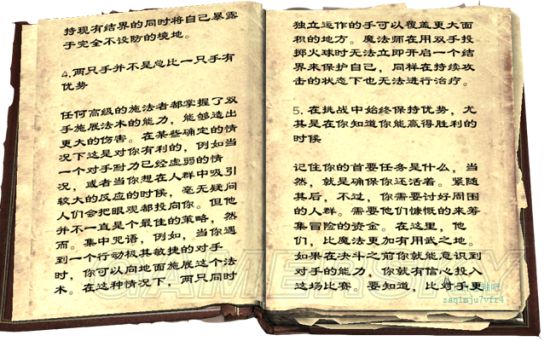 持现有结界的同时将自己暴露
于完全不设防的境地。
4.两只手并不是总比一只手有
优势
任何高级的施法者都掌握了双
手施展法术的能力，能够造出
更大的伤害。在某些确定的情
况下这是对你有利的，例如当
一个对手耐力已经虚弱的情
况，或者当你想在人群中吸引
较大的反应的时候，毫无疑问
人们会把眼观都投向你。但他
并不一直是个最佳的策略，然
而。集中咒语，例如，当你遇
到一个行动极其敏捷的对手
时，你可以向地面施展这个法
术。在这种情况下，两只同时
独立运作的手可以覆盖更大面
积的地方。魔法师在用双手投
掷火球时无法立即开启一个结
界来保护自己，同样在持续攻
击的状态下也无法进行治疗。
5.在挑战中始终保持优势，尤
其是在你知道你能赢得胜利的
时候
记住你的首要任务是什么，当
然，就是确保你还活着。紧随
其后，不过，你需要讨好周围
的人群。需要他们慷慨的来筹
集冒险的资金。在这里，他
们，比魔法更加有用武之地。
如果在决斗之前你就能意识到
对手的能力，你就有信心投入
这场比赛。要知道，比对手更
GAMERSKY